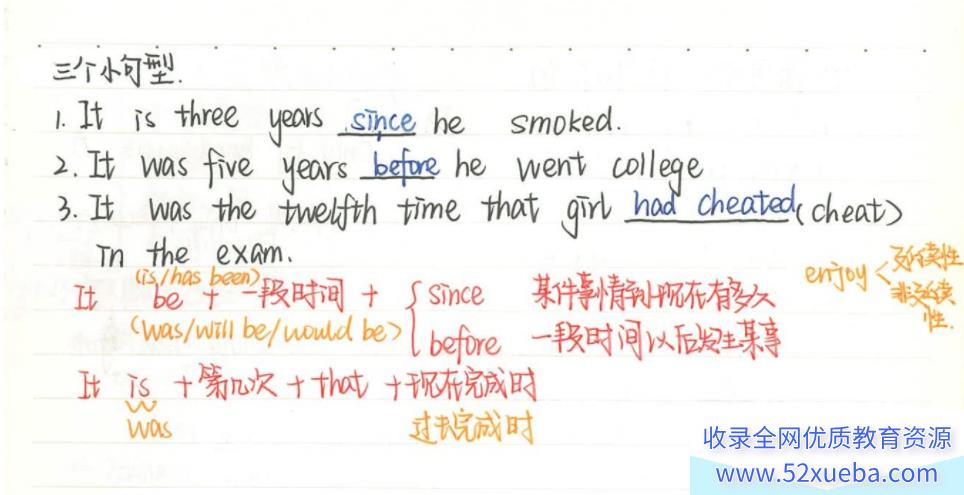 三个小句型.
1. It is three years since he smoked.
2. It was five years before he went college
3. It was the twelfth time that girl had cheated (cheat)
in the exam.
(is/has been)
It be + 一段时间 + { since 某件事情到现在有多久
(was/will be/would be) before 一段时间以后发生某事
enjoy < 延续性
非延续性.
It is + 第几次 + that + 现在完成时
was 过去完成时
收录全网优质教育资源
www.52xueba.com